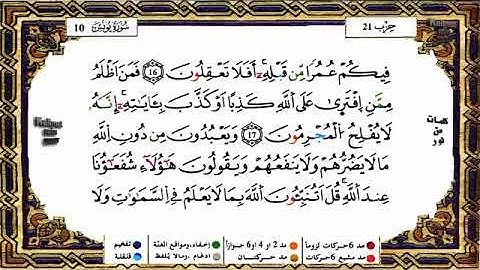 حزب 21
سُورَةُ يُونُسَ 10
فِيكُمْ عُمُرًا مِّن قَبْلِهِۦٓ ۚ أَفَلَا تَعْقِلُونَ ١٦ فَمَنْ أَظْلَمُ
مِمَّنِ ٱفْتَرَىٰ عَلَى ٱللَّهِ كَذِبًا أَوْ كَذَّبَ بِـَٔايَـٰتِهِۦٓ ۚ إِنَّهُۥ
لَا يُفْلِحُ ٱلْمُجْرِمُونَ ١٧ وَيَعْبُدُونَ مِن دُونِ ٱللَّهِ
مَا لَا يَضُرُّهُمْ وَلَا يَنفَعُهُمْ وَيَقُولُونَ هَـٰٓؤُلَآءِ شُفَعَـٰٓؤُنَا
عِندَ ٱللَّهِ ۚ قُلْ أَتُنَبِّـُٔونَ ٱللَّهَ بِمَا لَا يَعْلَمُ فِى ٱلسَّمَـٰوَٰتِ وَلَا
كلمات
من
نور
مد 6 حركات لزوماً مد 2 أو 4 أو 6 جوازاً إخفاء، ومواقع الغنة تفخيم
مد مشبع 6 حركات مد حركتان إدغام، ومالا يلفظ قلقلة